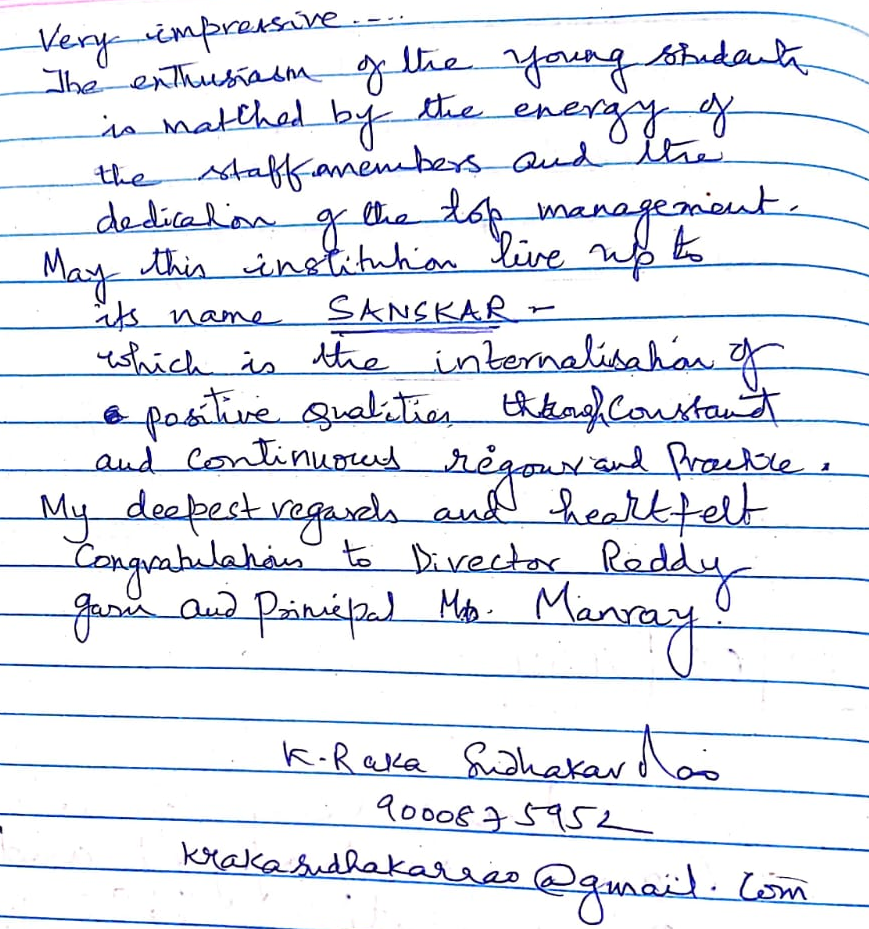 Very impressive.....
The enthusiasm of the young students
is matched by the energy of
the staff members and the
dedication of the top management.
May this institution live up to
its name SANSKAR -
which is the internalisation of
positive qualities through constant
and continuous rigour and Practice.
My deepest regards and heartfelt
Congratulations to Director Reddy
garu and Principal Mrs. Manray.
K. Raka Sudhakar Rao
9000875952
krakasudhakarrao@gmail.com